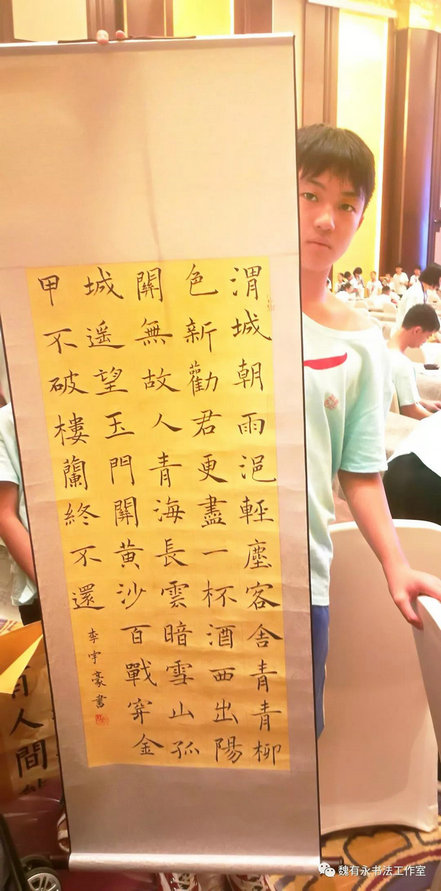 渭城朝雨浥輕塵客舍青青柳
色新勸君更盡一杯酒西出陽
關無故人青海長雲暗雪山孤
城遥望玉門關黄沙百戰穿金
甲不破樓蘭終不還
李宇豪書
人間
魏有永书法工作室